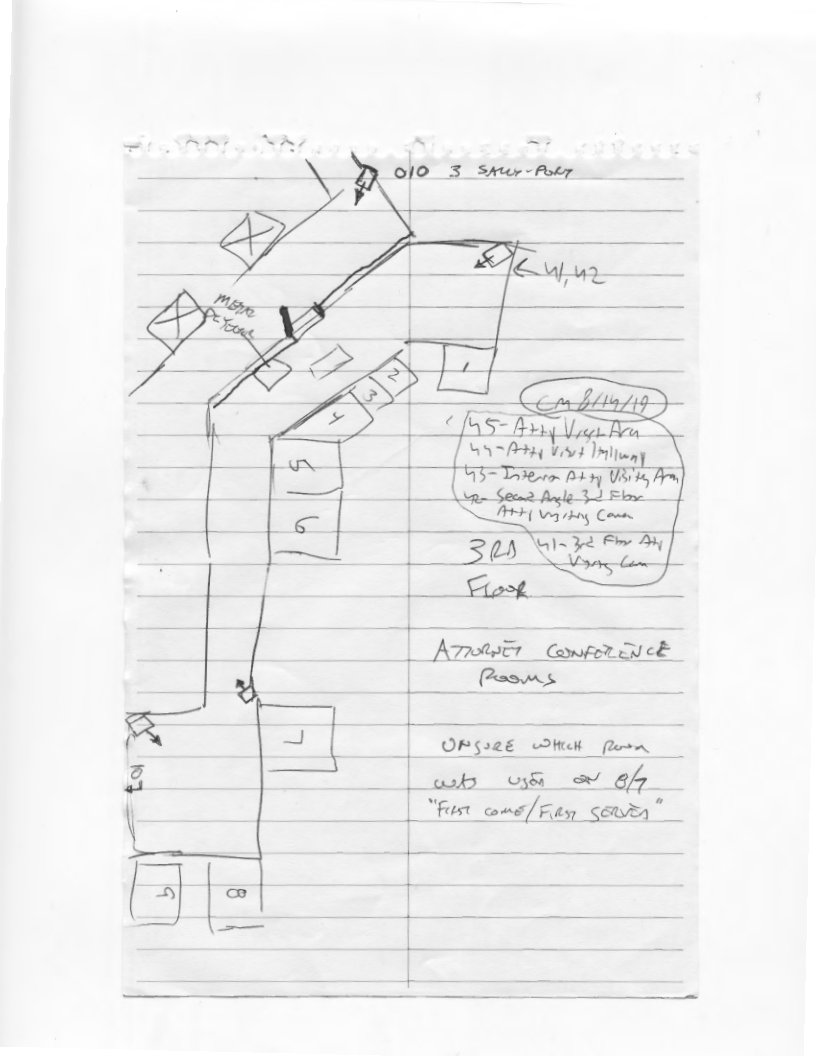 010 3 SALLY-PORT
41,42
METAL
DETECTOR
1
2
3
4
5
6
CM 8/14/19
45-Atty Visit Area
44-Atty Visit Hallway
43-Interior Atty Visiting Area
42-Second Angle 3rd Floor
Atty Visiting Camera
41-3rd Floor Atty
Visiting Cam
3RD
FLOOR
ATTORNEY CONFERENCE
ROOMS
7
UNSURE WHICH ROOM
WAS USED ON 8/7
"FIRST COME/FIRST SERVED"
10
9
8